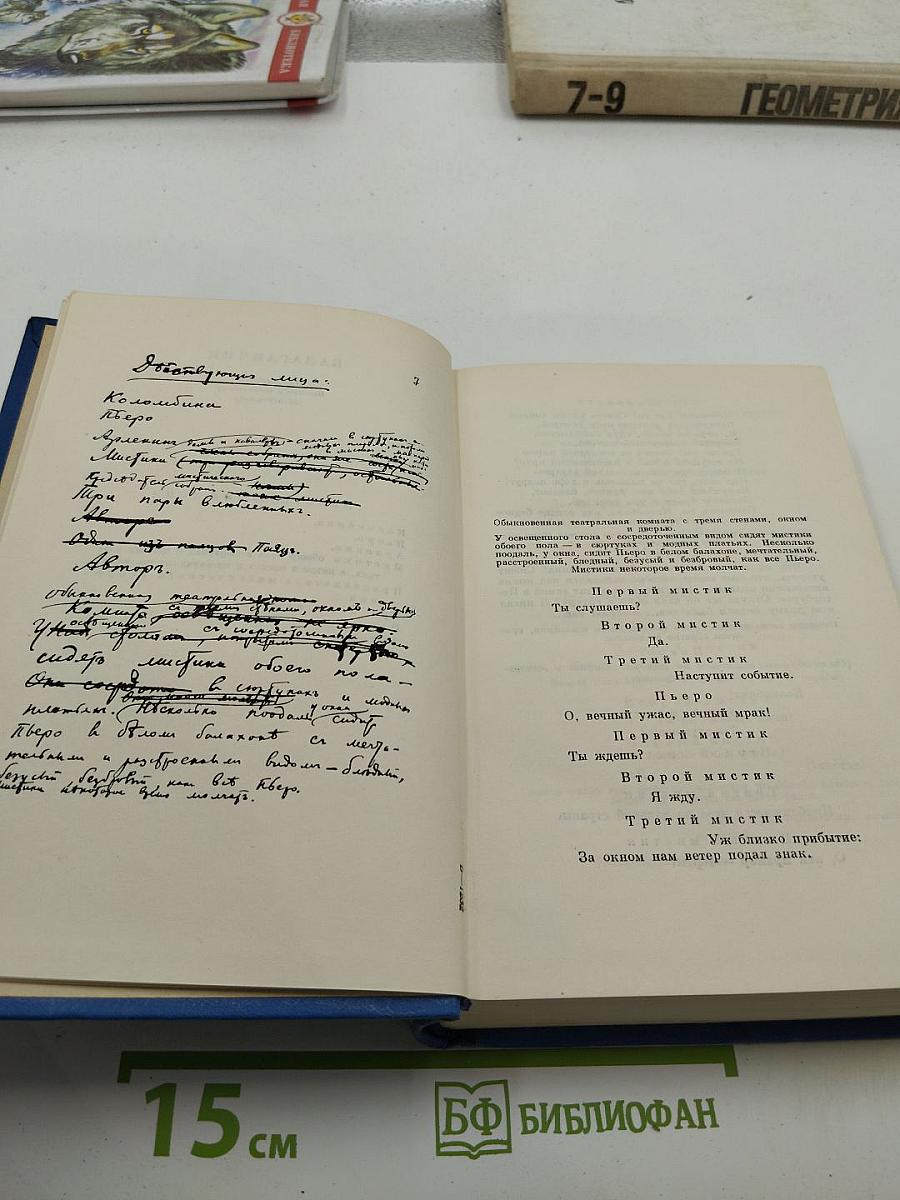 БИБЛИОТЕКА
7-9 ГЕОМЕТРИЯ
Действующие лица:
7
Коломбина
Пьеро
Арлекинъ
Мистики
Три пары влюбленныхъ.
Авторъ
Одинъ изъ паяцовъ Паяцъ.
Авторъ.
обыкновенная театральная
Комната съ тремя стѣнами, окномъ и дверью
сидятъ мистики обоего пола —
въ сюртукахъ и модныхъ
платьяхъ. Нѣсколько поодаль у окна сидитъ
Пьеро въ бѣломъ балахонѣ съ мечта-
тельнымъ и разстроеннымъ видомъ — блѣдный,
безусый безбровый какъ всѣ Пьеро.
мистики нѣкоторое время молчатъ.
Обыкновенная театральная комната с тремя стенами, окном
и дверью.
У освещенного стола с сосредоточенным видом сидят мистики
обоего пола — в сюртуках и модных платьях. Несколько
поодаль, у окна, сидит Пьеро в белом балахоне, мечтательный,
расстроенный, бледный, безусый и безбровый, как все Пьеро.
Мистики некоторое время молчат.
Первый мистик
Ты слушаешь?
Второй мистик
Да.
Третий мистик
Наступит событие.
Пьеро
О, вечный ужас, вечный мрак!
Первый мистик
Ты ждешь?
Второй мистик
Я жду.
Третий мистик
Уж близко прибытие:
За окном нам ветер подал знак.
15 см
БФ БИБЛИОФАН